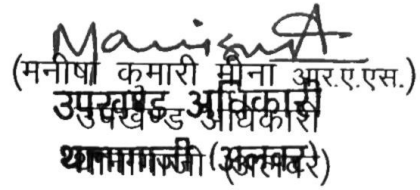 (मनीषा कुमारी मीना आर.ए.एस.)
उपखण्ड अधिकारी
उपखण्ड अधिकारी
थानागाजी (अलवर)
थानागाजी (अलवर)